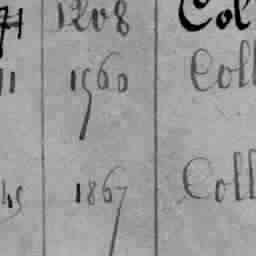 71 1208 Col
11 1560 Coll
45 1867 Coll